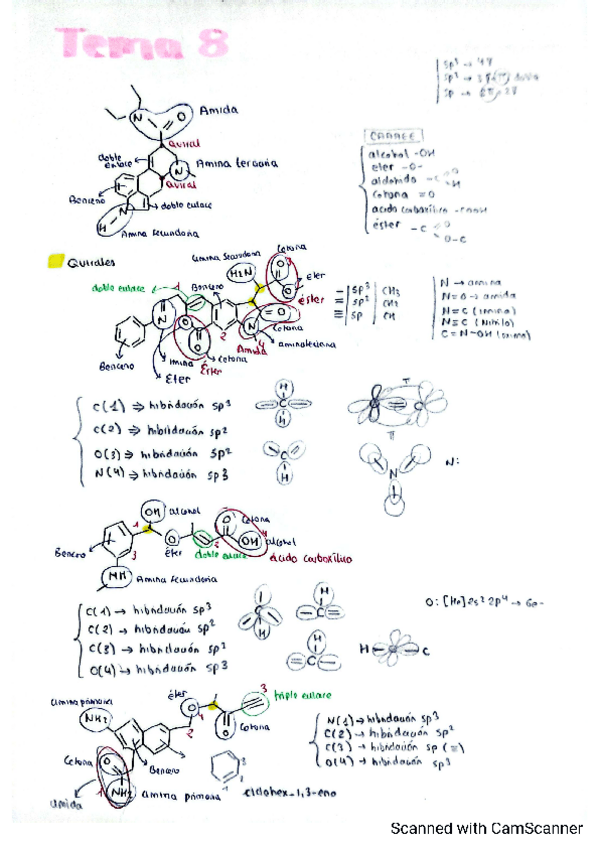 Tema 8
sp³ → 4σ
Amida
N
O
Quiral
doble enlace
N
Amina terciaria
quiral
Benceno
doble enlace
H - N
Amina secundaria
CARREE
alcohol -OH
eter -O-
aldehido -C
=O
-H
cetona =O
acido carboxílico -COOH
éster -C
=O
O-C
Quirales
Amina secundaria
Cetona
H₂N
O
3
eter
O
éster
doble enlace
1
Benceno
N
O
O
2
N
4
=O
Cetona
Amida
aminoterciaria
Benceno
imina
Cetona
Éter
Éster
- | sp³ | CH₃
= | sp² | CH₂
≡ | sp | CH
N → amina
N=O → amida
N=C (imina)
N≡C (Nitrilo)
C=N-OH (oxima)
C(1) ⇒ hibridación sp³
C(2) ⇒ hibridación sp²
O(3) ⇒ hibridación sp²
N(4) ⇒ hibridación sp3
H
C
H
C
H
π
C
C
π
N
N:
OH
alcohol
1
O
Cetona
Benceno
3
O
éter
doble enlace
2
OH
alcohol
ácido carboxílico
NH
Amina secundaria
C(1) → hibridación sp³
C(2) → hibridación sp²
C(3) → hibridación sp²
O(4) → hibridación sp³
C
H
H
C
H
C
H
C
O: [He] 2s² 2p⁴ → 6e-
amina primaria
éter
3
triple enlace
NH₂
O
4
2
O
Cetona
Cetona
O
Benceno
NH₂
1
amina primaria
amida
3
2
1
ciclohex-1,3-eno
N(1) → hibridación sp³
C(2) → hibridación sp²
C(3) → hibridación sp (≡)
O(4) → hibridación sp³
Scanned with CamScanner